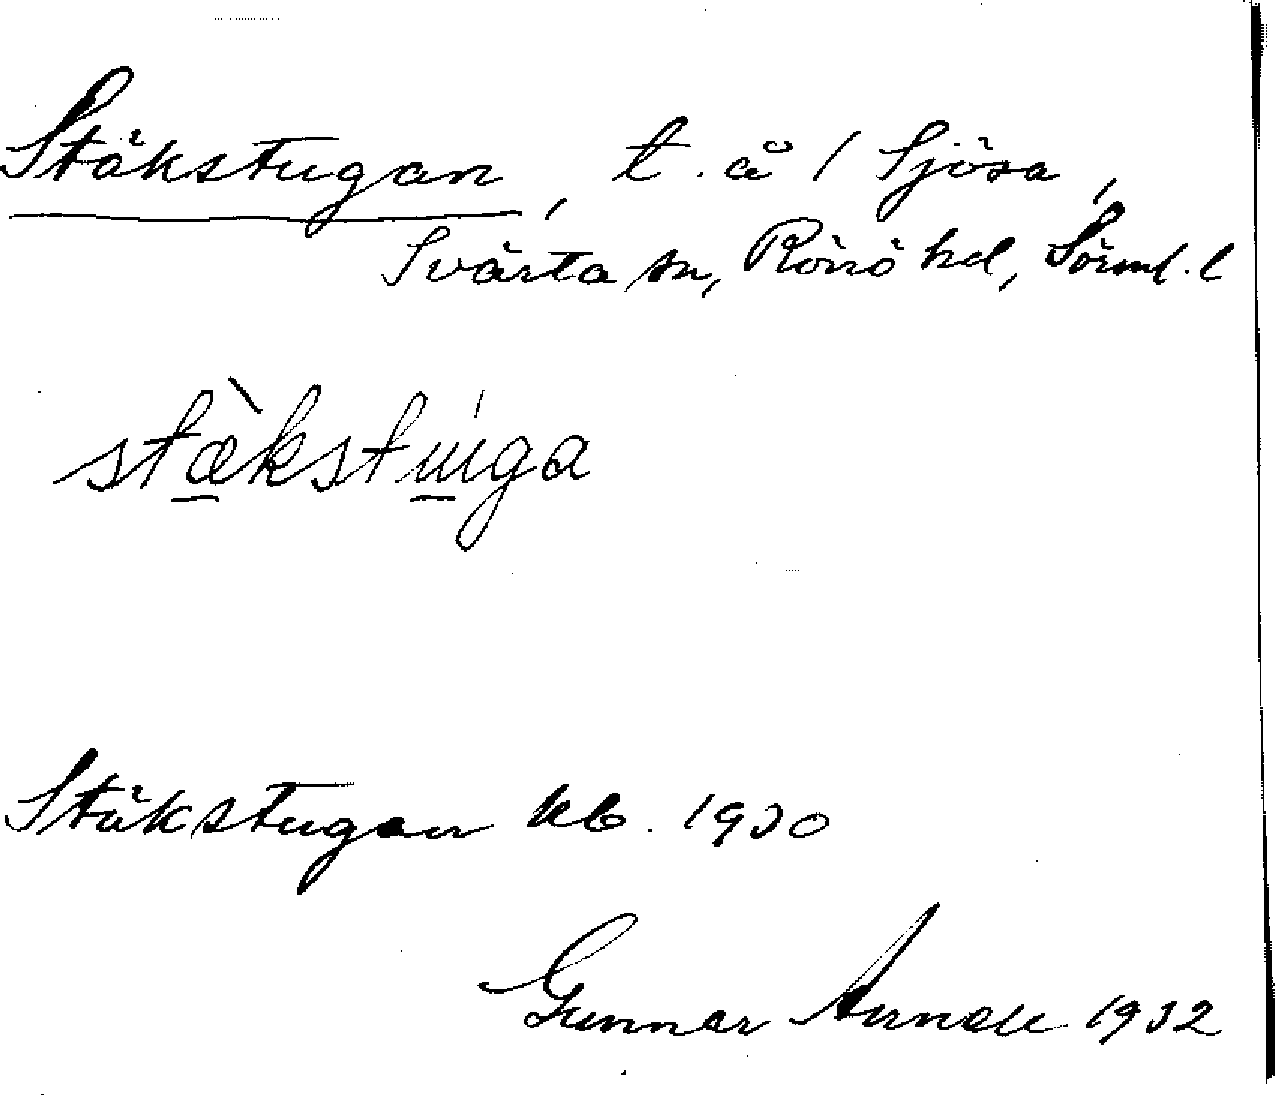 Stäkstugan, t. å 1 Sjösa,
Svärta sn, Rönö hd, Sörml. l
stæ̀kstuga
Stäkstugan kb. 1930
Gunnar 1932